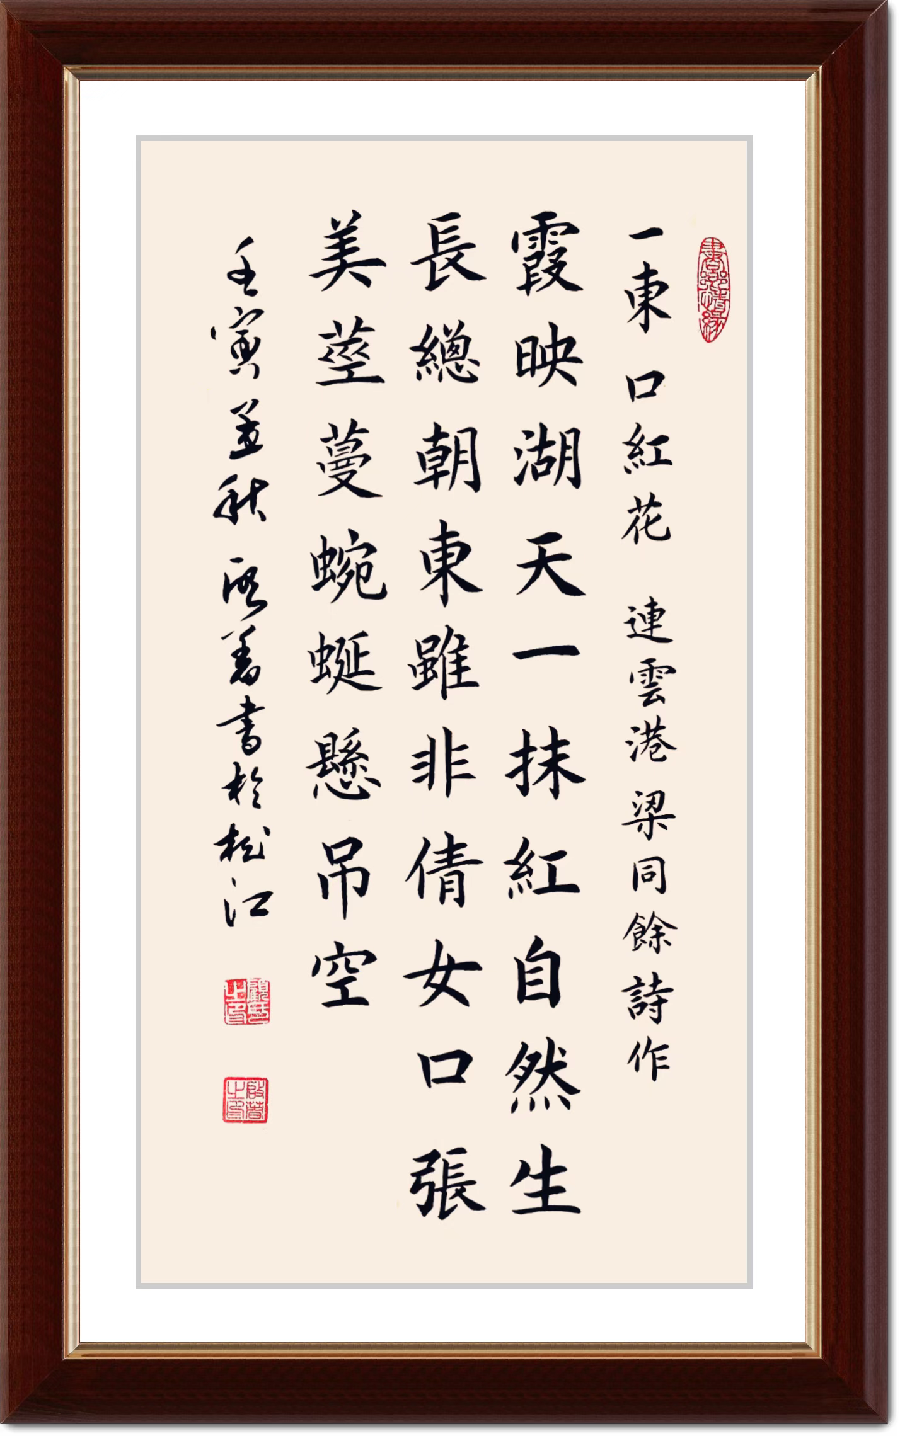 一東 口紅花 連雲港梁同餘詩作
霞映湖天一抹紅自然生
長總朝東雖非倩女口張
美莖蔓蜿蜒懸吊空
壬寅孟秋 啓善書於松江